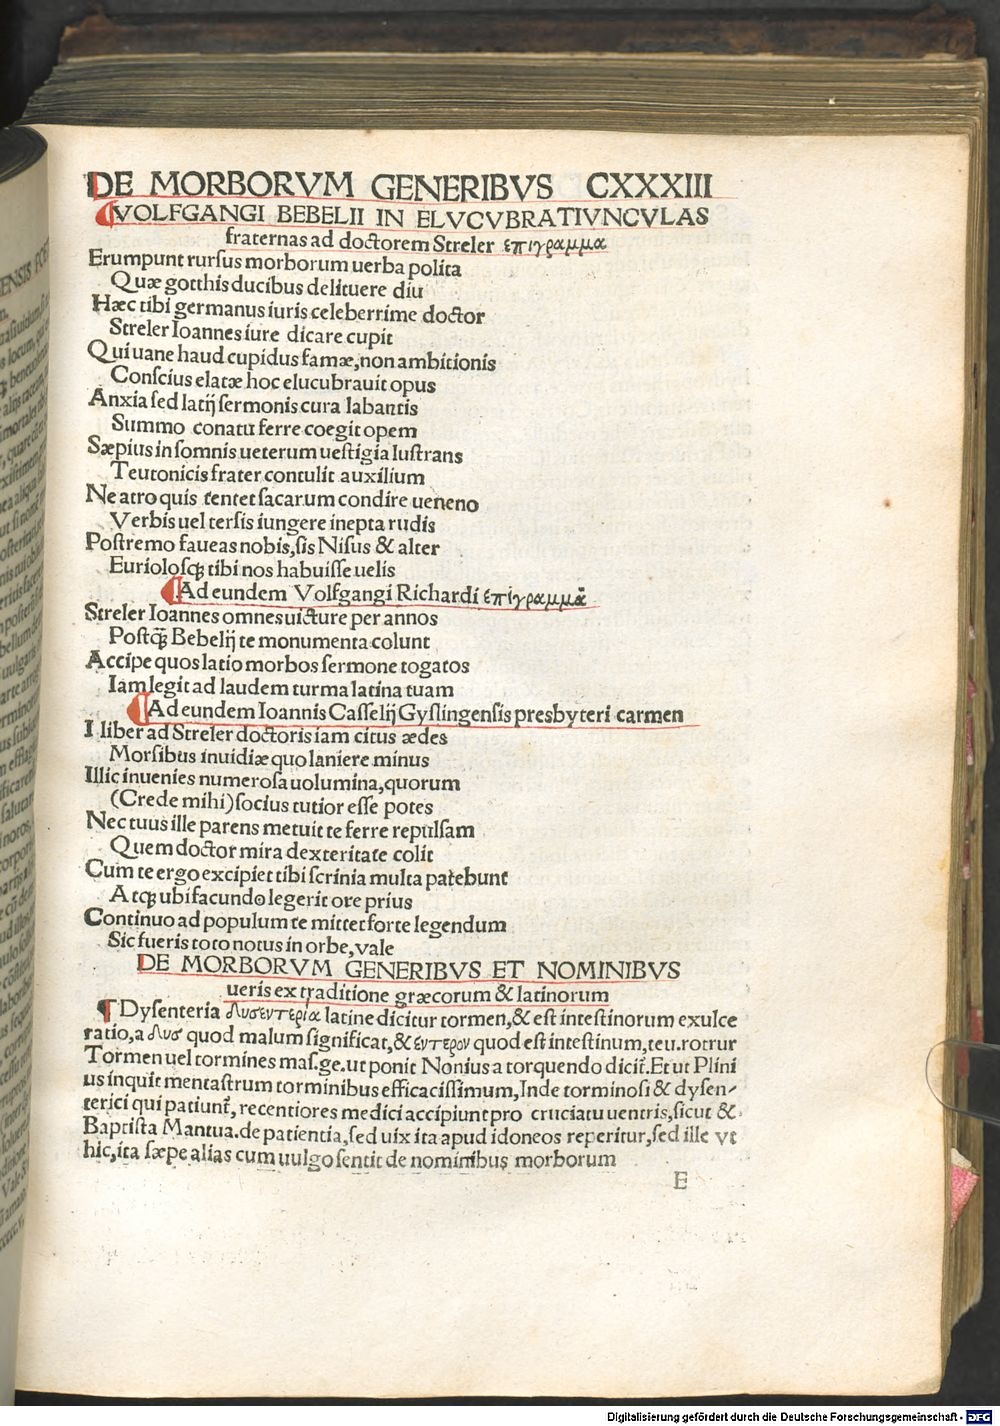 DE MORBORVM GENERIBVS CXXXIII
VOLFGANGI BEBELII IN ELVCVBRATIVNCVLAS
fraternas ad doctorem Streler επιγραμμα
Erumpunt rursus morborum uerba polita
Quæ gotthis ducibus delituere diu
Hæc tibi germanus iuris celeberrime doctor
Streler Ioannes iure dicare cupit
Qui uane haud cupidus famæ, non ambitionis
Conscius elatæ hoc elucubrauit opus
Anxia sed latij sermonis cura labantis
Summo conatu ferre coegit opem
Sæpius in somnis ueterum uestigia lustrans
Teutonicis frater contulit auxilium
Ne atro quis tentet sacarum condire ueneno
Verbis uel tersis iungere inepta rudis
Postremo faueas nobis, sis Nisus & alter
Euriolosq; tibi nos habuisse uelis
Ad eundem Volfgangi Richardi επίγραμμα
Streler Ioannes omnes uicture per annos
Postq̃ Bebelij te monumenta colunt
Accipe quos latio morbos sermone togatos
Iam legit ad laudem turma latina tuam
Ad eundem Ioannis Casselij Gyslingensis presbyteri carmen
I liber ad Streler doctoris iam citus ædes
Morsibus inuidiæ quo laniere minus
Illic inuenies numerosa uolumina, quorum
(Crede mihi) socius tutior esse potes
Nec tuus ille parens metuit te ferre repulsam
Quem doctor mira dexteritate colit
Cum te ergo excipiet tibi scrinia multa patebunt
Atq; ubi facundo legerit ore prius
Continuo ad populum te mittet forte legendum
Sic fueris toto notus in orbe, vale
DE MORBORVM GENERIBVS ET NOMINIBVS
ueris ex traditione græcorum & latinorum
¶ Dysenteria δυσεντερία latine dicitur tormen, & est intestinorum exulce
ratio, a δυσ quod malum significat, & έντερον quod est intestinum, teu. rotrur
Tormen uel tormines mas. ge. ut ponit Nonius a torquendo dicit̃. Et ut Plini
us inquit mentastrum torminibus efficacissimum, Inde torminosi & dysen-
terici qui patiunt̃, recentiores medici accipiunt pro cruciatu uentris, sicut &
Baptista Mantua. de patientia, sed uix ita apud idoneos reperitur, sed ille vt
hic, ita sæpe alias cum uulgo sentit de nominibus morborum
E
Digitalisierung gefördert durch die Deutsche Forschungsgemeinschaft - DFG